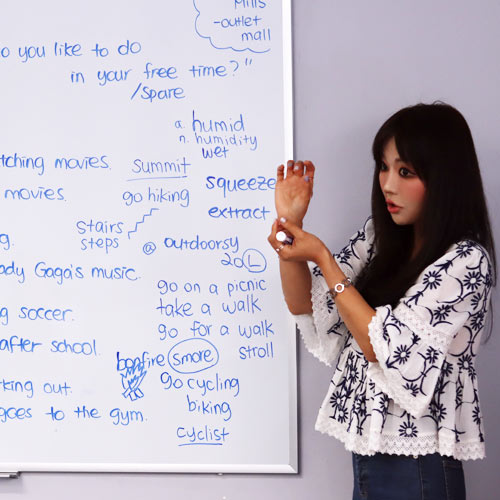 Mills
-outlet
mall
o you like to do
in your free time?"
/spare
a. humid
n. humidity
wet
tching movies.
summit
squeeze
movies.
go hiking
extract
stairs
steps
g.
@ outdoorsy
20L
ady Gaga's music.
go on a picnic
take a walk
g soccer.
go for a walk
stroll
after school.
bonfire
smore
king out.
go cycling
biking
goes to the gym.
cyclist